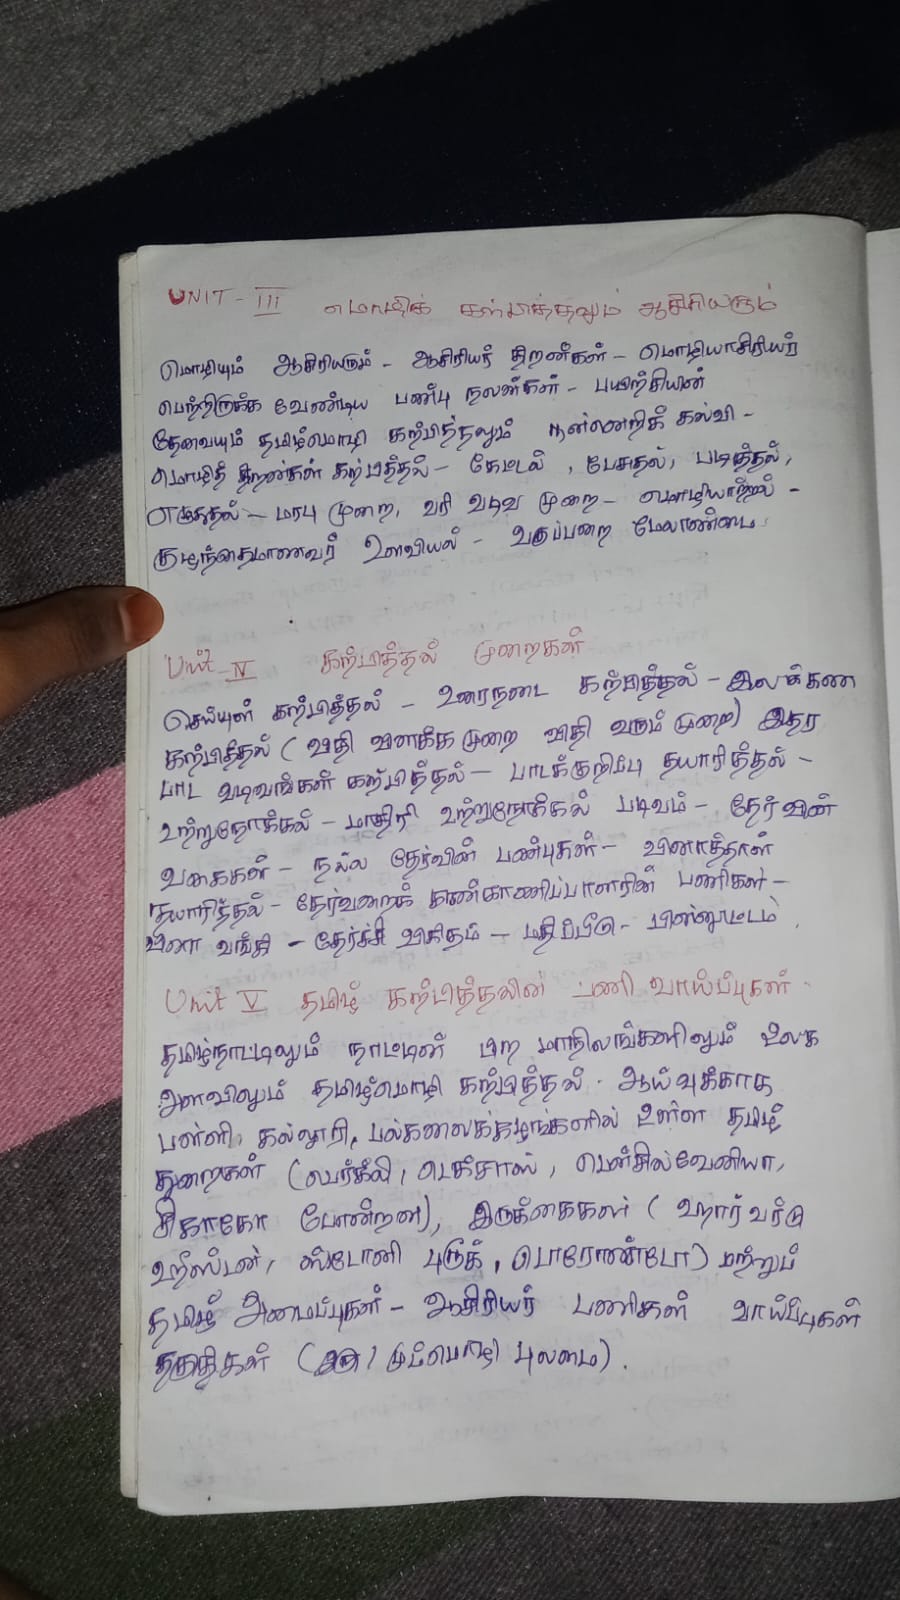 UNIT - III மொழிக் கற்பித்தலும் ஆசிரியரும்
மொழியும் ஆசிரியரும் - ஆசிரியர் திறன்கள் - மொழியாசிரியர்
பெற்றிருக்க வேண்டிய பண்பு நலன்கள் - பயிற்சியின்
தேவையும் தமிழ்மொழி கற்பித்தலும் நுண்ணறிக் கல்வி -
மொழித் திறன்கள் கற்பித்தல் - கேட்டல், பேசுதல், படித்தல்,
எழுதுதல் - மரபு முறை, வரி வடிவ முறை - மொழியாற்றல் -
குழந்தைமாணவர் உளவியல் - வகுப்பறை மேலாண்மை.
Unit - IV கற்பித்தல் முறைகள்
செய்யுள் கற்பித்தல் - உரைநடை கற்பித்தல் - இலக்கண
கற்பித்தல் (விதி விளக்க முறை விதி வரும் முறை) இதர
பாட வடிவங்கள் கற்பித்தல் - பாடக்குறிப்பு தயாரித்தல் -
உற்றுநோக்கல் - மாதிரி உற்றுநோக்கல் படிவம் - தேர்வின்
வகைகள் - நல்ல தேர்வின் பண்புகள் - வினாத்தாள்
தயாரித்தல் - தேர்வறைக் கண்காணிப்பாளரின் பணிகள் -
வினா வங்கி - தேர்ச்சி விகிதம் - மதிப்பீடு - பின்னூட்டம்.
Unit V தமிழ் கற்பித்தலின் பணி வாய்ப்புகள்.
தமிழ்நாட்டிலும் நாட்டின் பிற மாநிலங்களிலும் உலக
அளவிலும் தமிழ்மொழி கற்பித்தல். ஆய்வுக்காக
பள்ளி, கல்லூரி, பல்கலைக்கழகங்களில் உள்ள தமிழ்
துறைகள் (பெர்க்லி, டெக்சாஸ், பென்சில்வேனியா,
சிகாகோ போன்றன), இருக்கைகள் (ஹார்வர்டு
ஹூஸ்டன், ஸ்டோனி புரூக், டொரோண்டோ) மற்றும்
தமிழ் அமைப்புகள் - ஆசிரியர் பணிகள் வாய்ப்புகள்
தகுதிகள் (மும்மொழி புலமை).